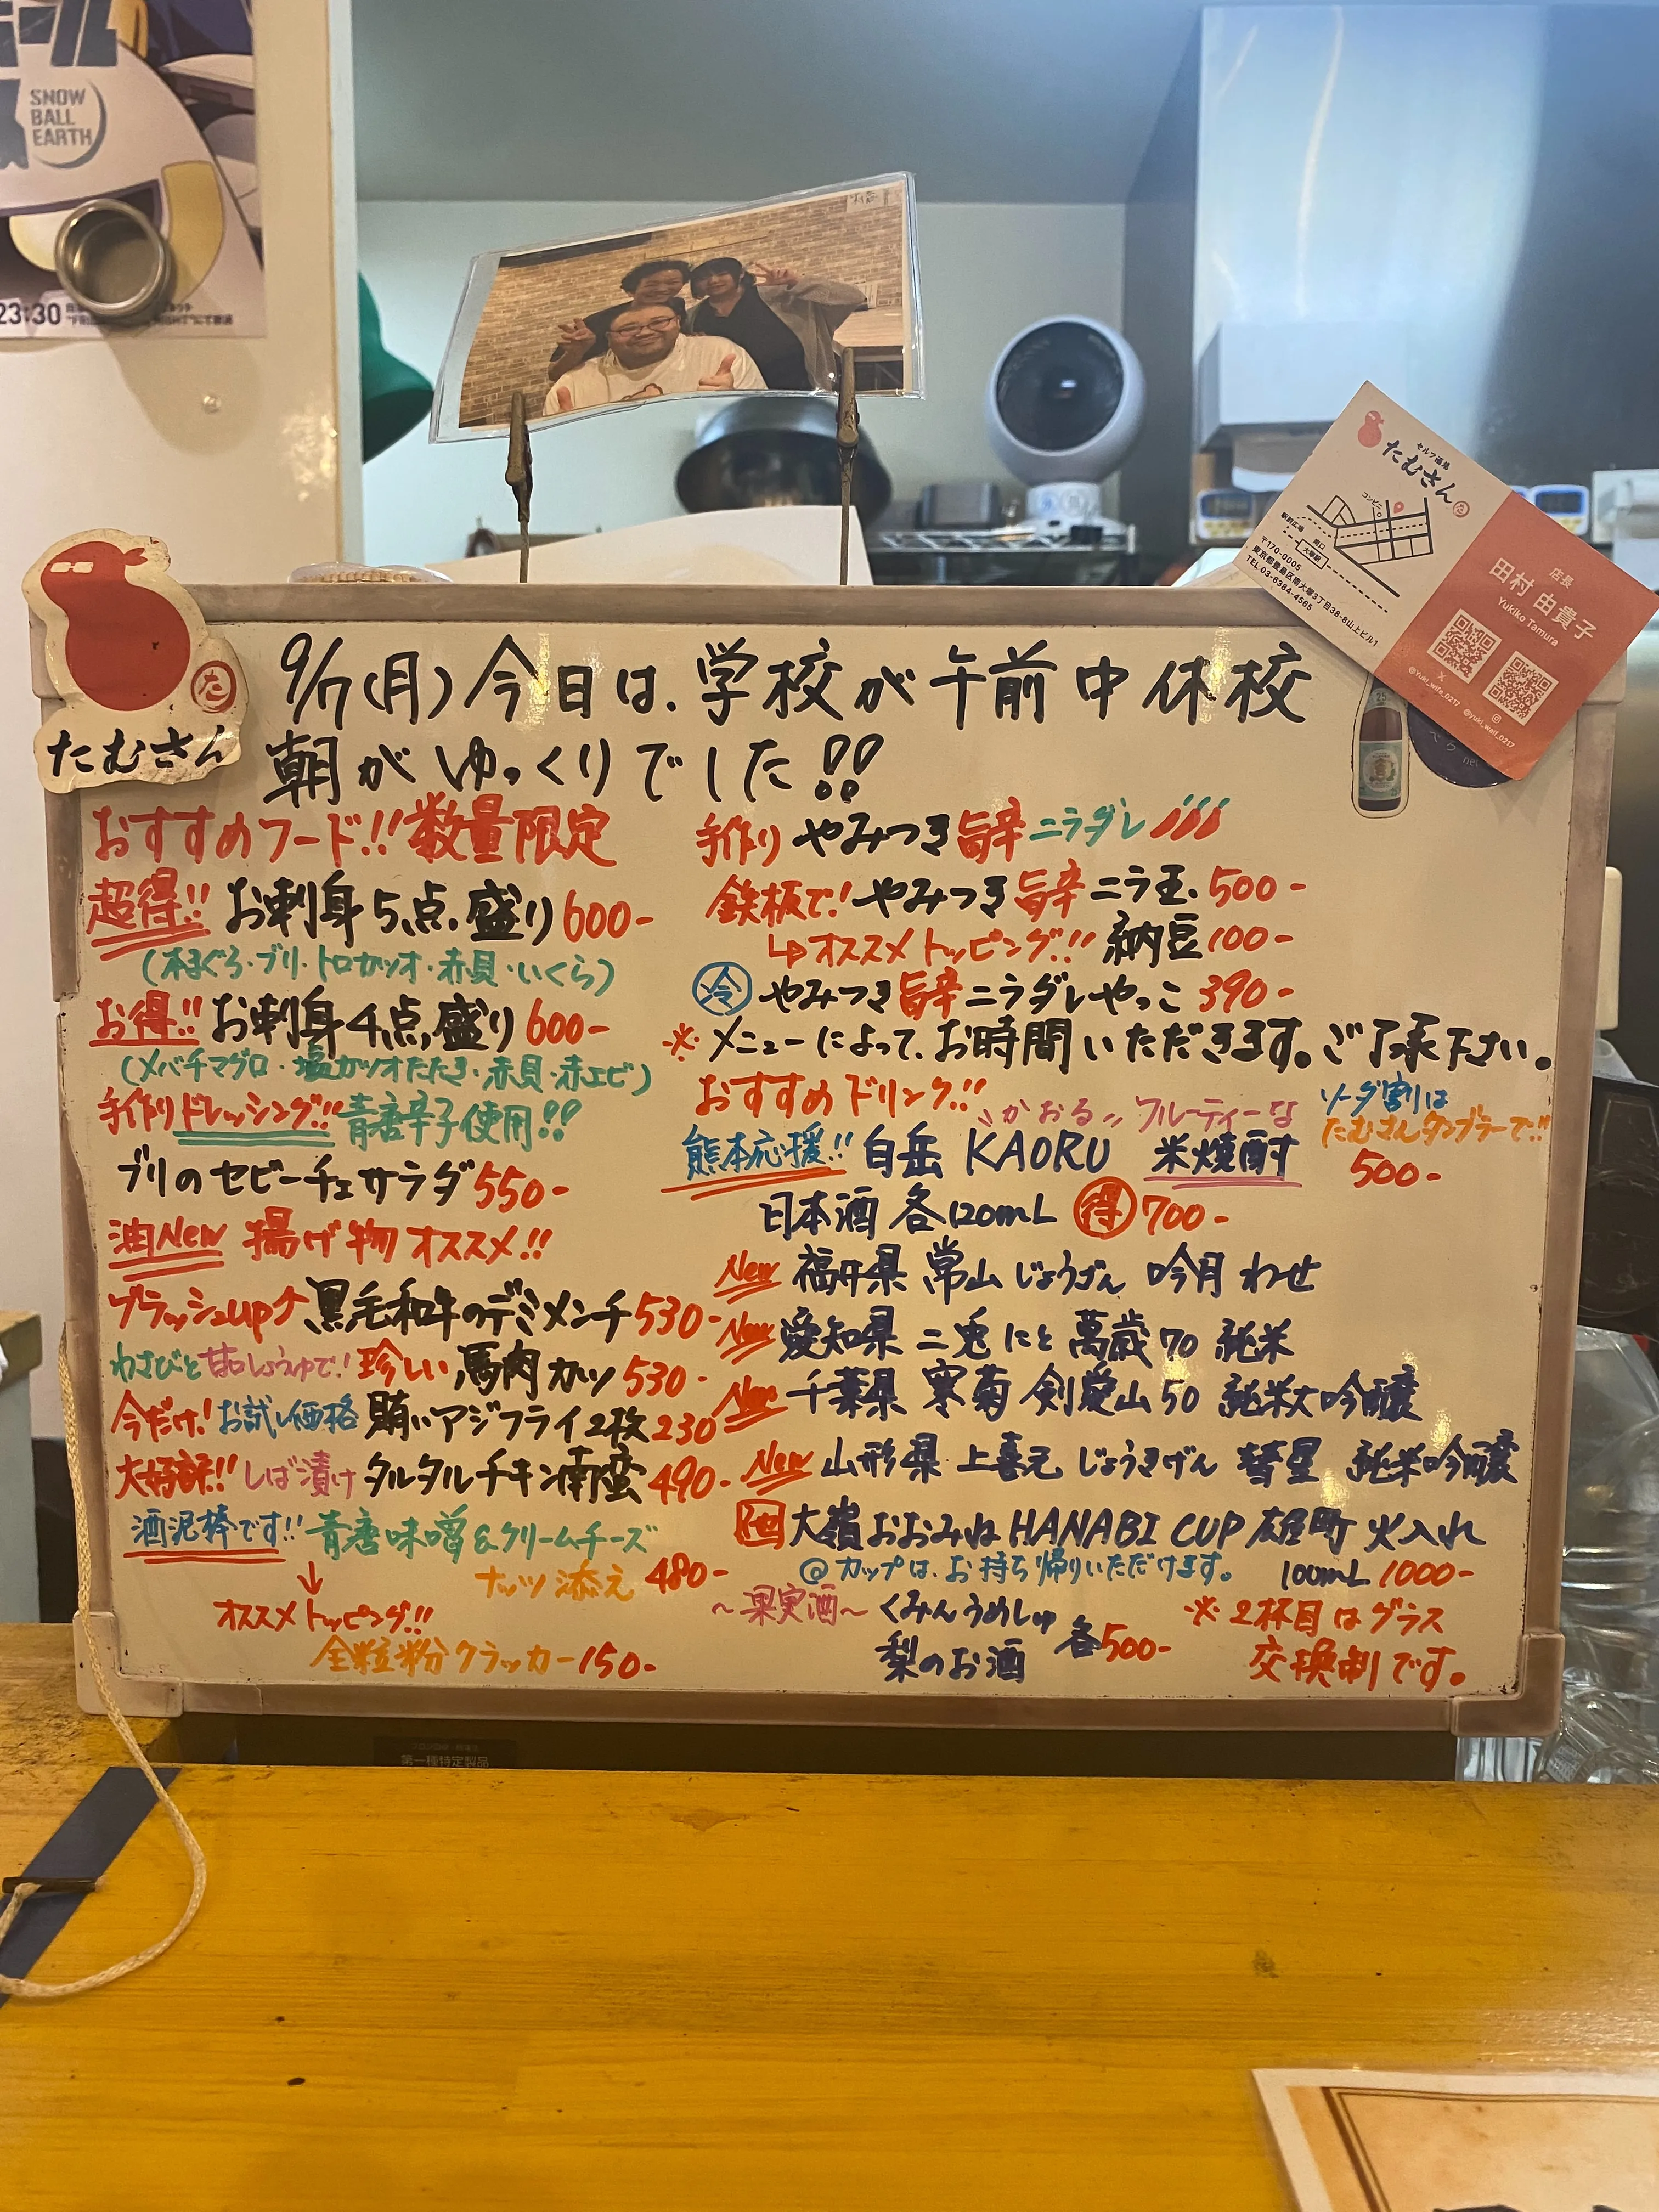 SNOW
BALL
EARTH
23:30
セルフ酒場
たむさん
コンビニ
駅前広場
南口
大塚駅
〒170-0005
東京都豊島区南大塚3丁目38-8山上ビル1
TEL 03-6384-4565
店長
田村 由貴子
Yukiko Tamura
@yuki_weif_0217
たむさん
9/7(月)今日は、学校が午前中休校
朝がゆっくりでした!!
おすすめフード!!数量限定
超得!! お刺身5点盛り600-
(本まぐろ・ブリ・トロカツオ・赤貝・いくら)
お得!! お刺身4点盛り600-
(メバチマグロ・塩カツオたたき・赤貝・赤エビ)
手作りドレッシング!!青唐辛子使用!!
ブリのセビーチェサラダ550-
油New 揚げ物オススメ!!
ブラッシュup↑黒毛和牛のデミメンチ530-
わさびと甘口しょうゆで!珍しい馬肉カツ530-
今だけ!お試し価格 賄いアジフライ2枚230
大好評!!しば漬けタルタルチキン南蛮490-
酒泥棒です!!青唐味噌&クリームチーズ
ナッツ添え 480-
↓
オススメトッピング!!
全粒粉クラッカー150-
手作りやみつき旨辛ニラダレ
鉄板で!やみつき旨辛ニラ玉 500-
↳オススメトッピング!! 納豆100-
冷 やみつき旨辛ニラダレやっこ390-
※メニューによって、お時間いただきます。ご了承下さい。
おすすめドリンク!!
"かおる" フルーティーな
熊本応援!! 白岳 KAORU 米焼酎
ソーダ割は
たむさんタンブラーで!!
500-
日本酒 各120mL 得700-
New 福井県 常山 じょうざん 吟月 わせ
New 愛知県 二兎 にと 萬歳70 純米
New 千葉県 寒菊 剣愛山50 純米大吟醸
New 山形県 上喜元 じょうきげん 彗星 純米吟醸
他 大嶺おおみね HANABI CUP 雄町 火入れ
@カップは、お持ち帰りいただけます。 100mL 1000-
~果実酒~ くみんうめしゅ
梨のお酒 各500-
※2杯目はグラス
交換制です。
第一種特定製品